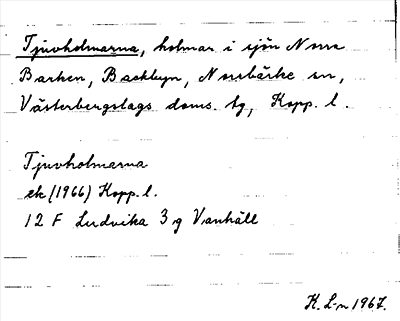 Tjuvholmarna, holmar i sjön Norra
Barken, Backbyn, Norrbärke sn,
Västerbergslags doms. tg, Kopp. l.
Tjuvholmarna
ek (1966) Kopp. l.
12 F Ludvika 3 g Vanhäll
K. L-n 1967.